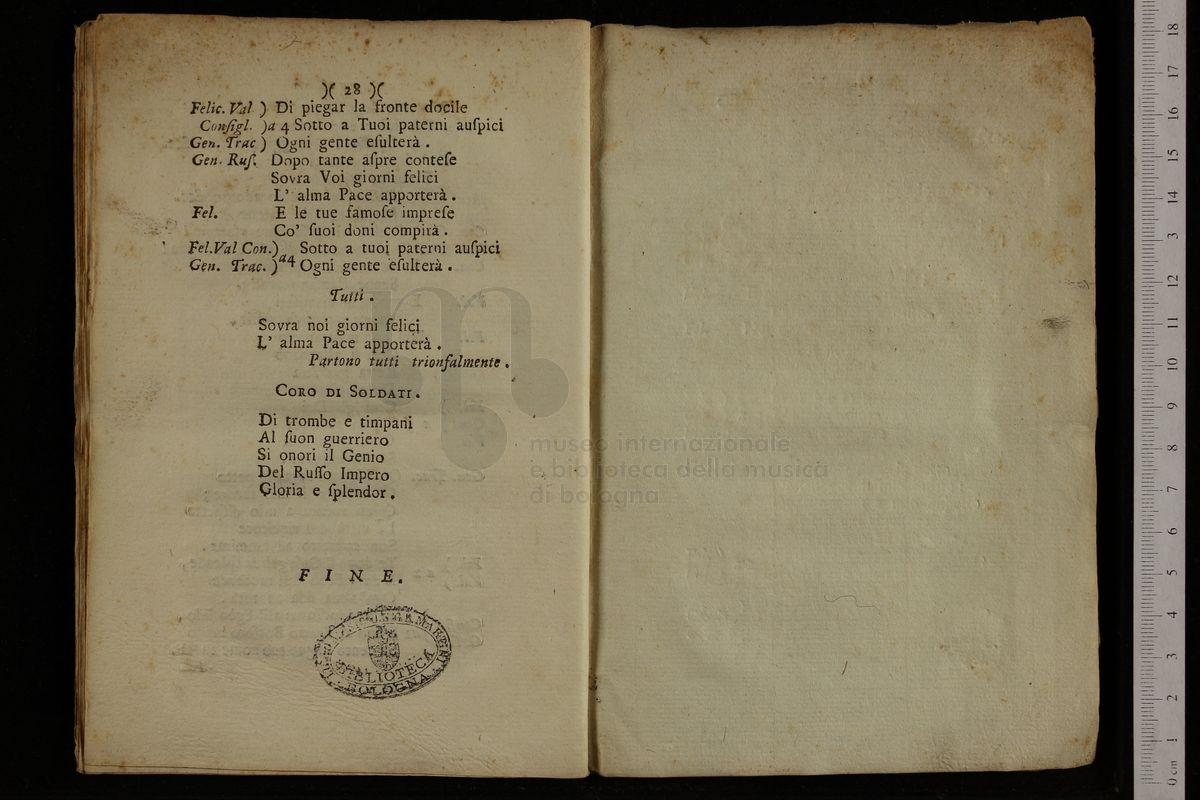 )( 28 )(
Felic. Val ) Di piegar la fronte docile
Conſigl. )a 4 Sotto a Tuoi paterni auſpici
Gen. Trac ) Ogni gente eſulterà .
Gen. Ruſ. Dopo tante aſpre conteſe
Sovra Voi giorni felici
L' alma Pace apporterà .
Fel. E le tue famoſe impreſe
Co' ſuoi doni compirà .
Fel.Val Con.) Sotto a tuoi paterni auſpici
Gen. Trac. )a4 Ogni gente eſulterà .
Tutti .
Sovra noi giorni felici
L' alma Pace apporterà .
Partono tutti trionfalmente .
CORO DI SOLDATI .
Di trombe e timpani
Al ſuon guerriero
Si onori il Genio
Del Ruſſo Impero
Gloria e ſplendor .
F I N E .
BIBLIOTECA
BOLOGNA
museo internazionale
e biblioteca della musica
di bologna
0 cm 1 2 3 4 5 6 7 8 9 10 11 12 3 14 15 16 17 18